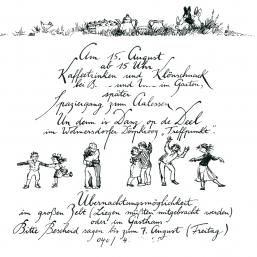 Am 15. August
ab 15 Uhr
Kaffeetrinken und Klönschnack
bei uns im Garten,
später
Spaziergang zum
Un denn is Danz op de Deel
im Wohnersdorfer "Treffpunkt".
Übernachtungsmöglichkeit
im großen Zelt (Liegen müßten mitgebracht werden)
oder im Gasthaus.
Bitte Bescheid sagen bis zum 7. August (Freitag)
040 / 4